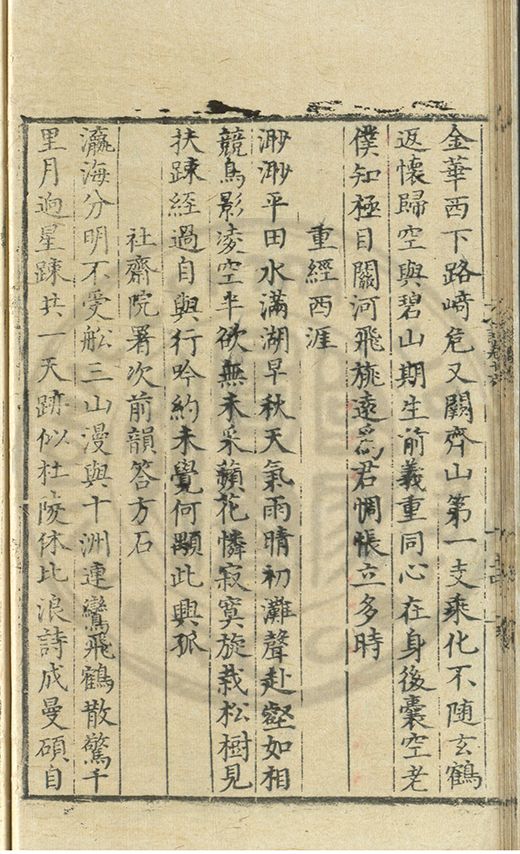 金華西下路崎危又闕齊山第一支乘化不随玄鶴
返懷歸空與碧山期生前義重同心在身後囊空老
僕知極目關河飛旐遠爲君惆悵立多時
重經西涯
渺渺平田水滿湖早秋天氣雨晴初灘聲赴壑如相
競鳥影凌空半欲無未采蘋花憐寂寞旋栽松樹見
扶踈經過自與行吟約未覺何顒此興孤
社齋院署次前韻答方石
瀛海分明不受舩三山漫與十洲連鸞飛鶴散驚千
里月逈星踈共一天跡似杜陵休比浪詩成曼碩自